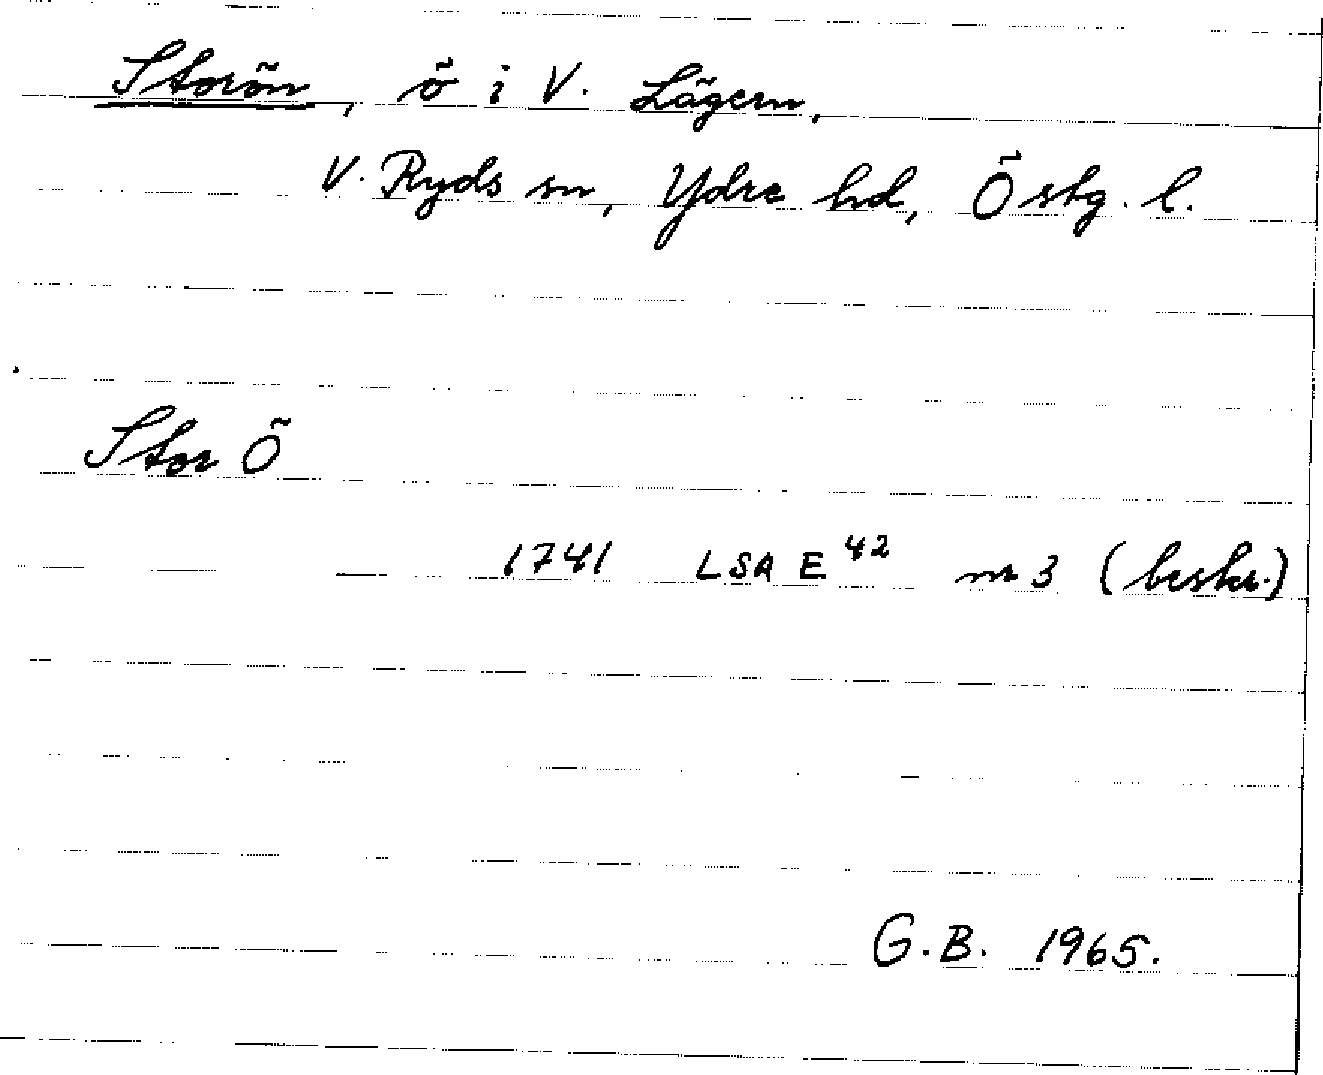 Storön, ö i V. Lägern,
V. Ryds sn, Ydre hd, Östg. l.
Stor Ö
1741 LSA E 42 nr 3 (beskr.)
G.B. 1965.